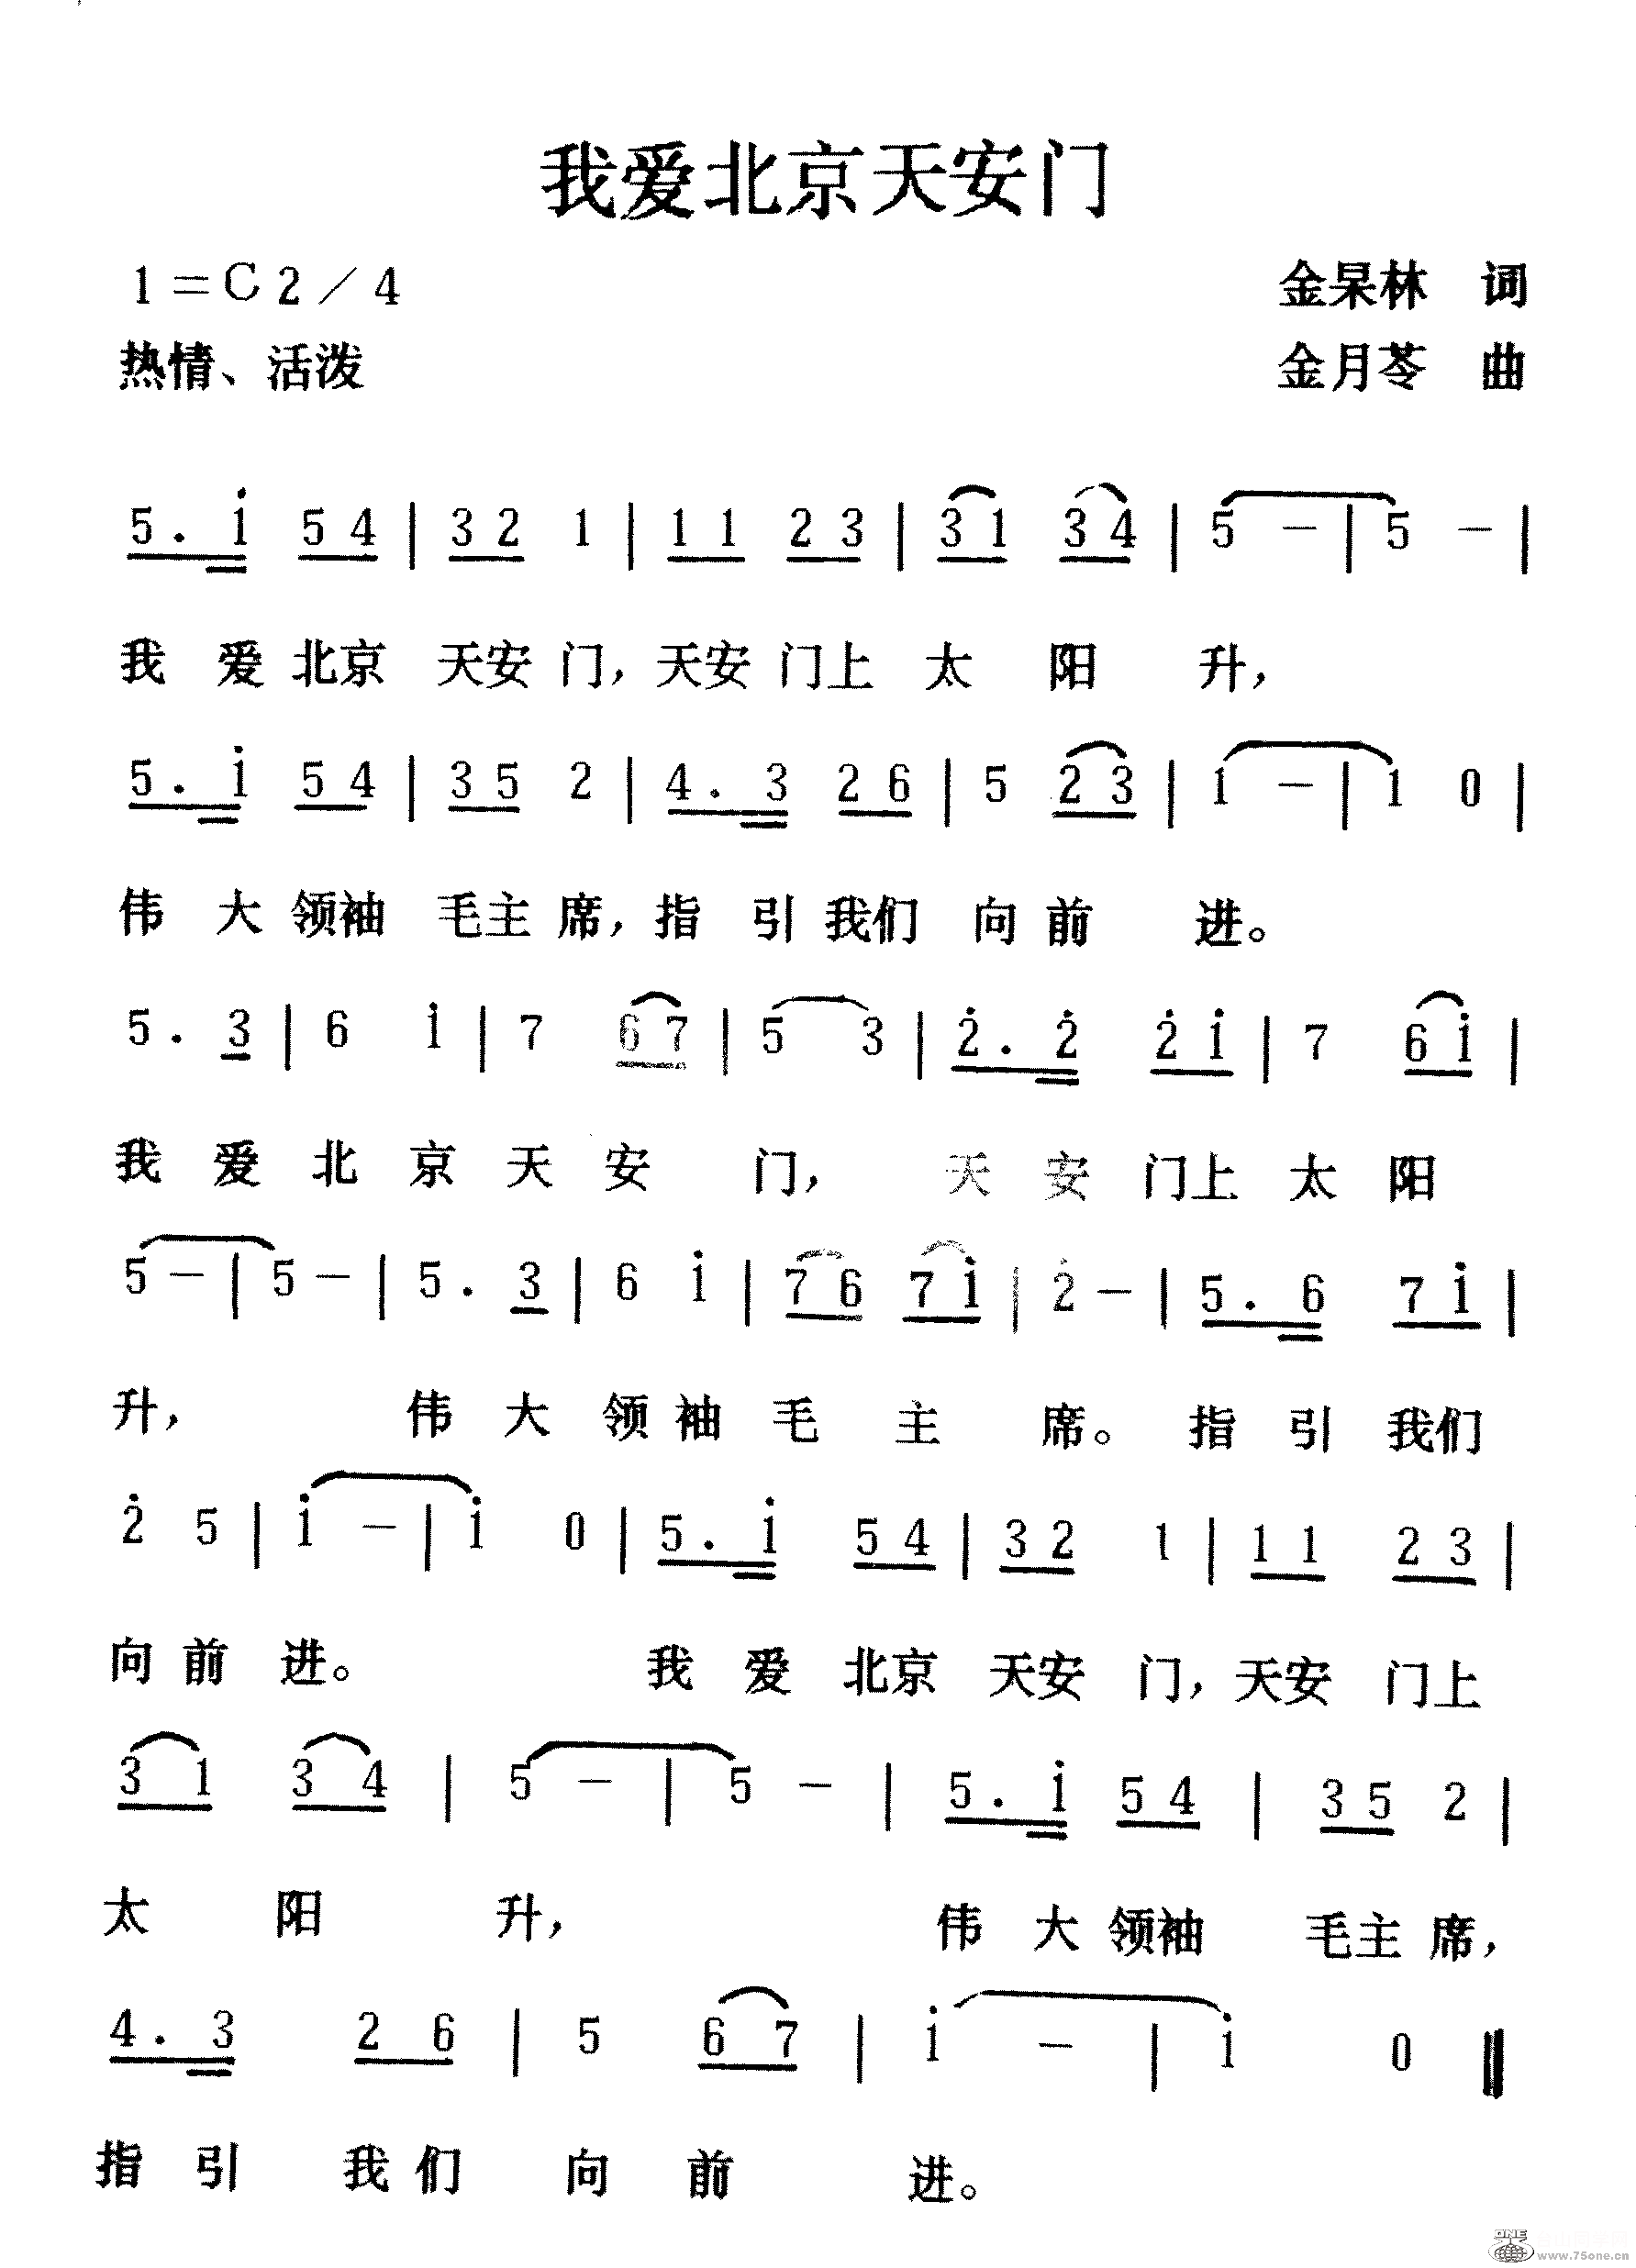 我爱北京天安门
1=C 2/4 金杲林 词
热情、活泼 金月苓 曲
5. i 5 4 | 3 2 1 | 1 1 2 3 | 3 1 3 4 | 5 - | 5 - |
我 爱 北京 天安 门，天安 门上 太 阳 升，
5. i 5 4 | 3 5 2 | 4. 3 2 6 | 5 2 3 | 1 - | 1 0 |
伟 大 领袖 毛主 席，指 引 我们 向 前 进。
5. 3 | 6 i | 7 6 7 | 5 3 | 2̇. 2̇ 2̇ i | 7 6 i |
我 爱 北 京 天 安 门， 天 安 门上 太 阳
5 - | 5 - | 5. 3 | 6 i | 7 6 7 i | 2̇ - | 5. 6 7 i |
升， 伟 大 领 袖 毛 主 席。 指 引 我们
2̇ 5 | i - | i 0 | 5. i 5 4 | 3 2 1 | 1 1 2 3 |
向 前 进。 我 爱 北京 天安 门，天安 门上
3 1 3 4 | 5 - | 5 - | 5. i 5 4 | 3 5 2 |
太 阳 升， 伟 大 领袖 毛主 席，
4. 3 2 6 | 5 6 7 | i - | i 0 ‖
指 引 我 们 向 前 进。
ONE
www.75one.cn